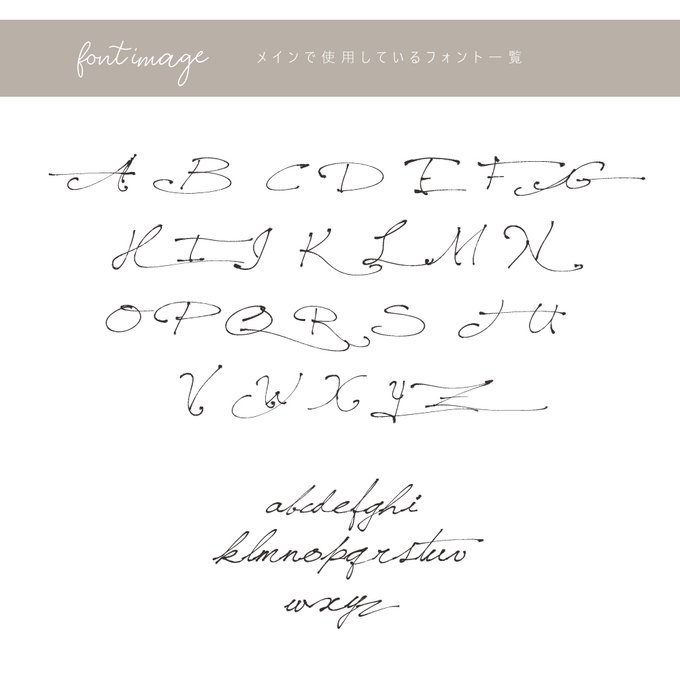 fontimage
メインで使用しているフォント一覧
A B C D E F G
H I J K L M N
O P Q R S T U
V W X Y Z
abcdefghi
klmnopqrstuv
wxyz